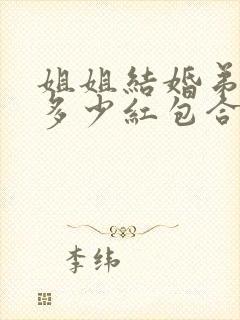 姐姐結婚弟
多少紅包合
李纬